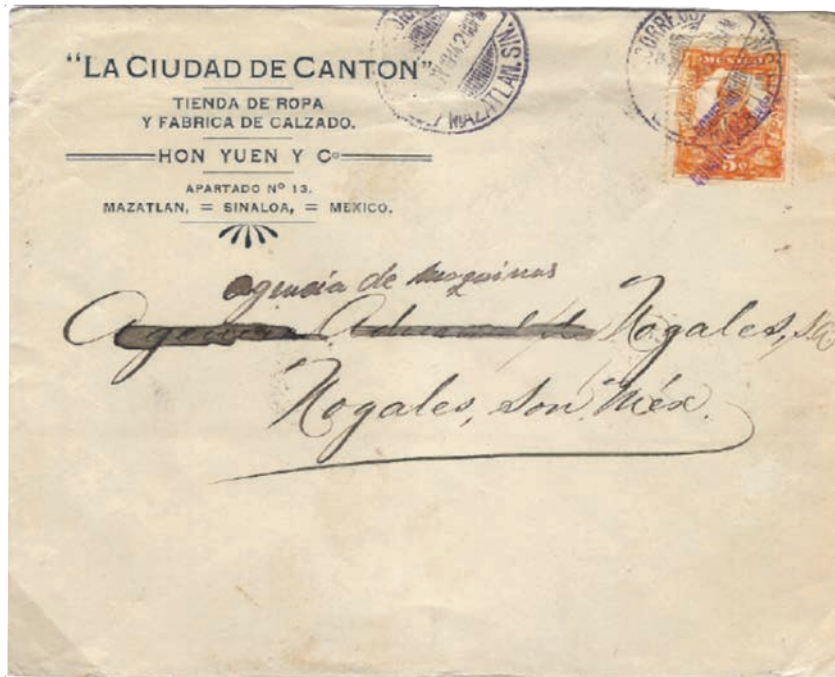 "LA CIUDAD DE CANTON"
TIENDA DE ROPA
Y FABRICA DE CALZADO.
HON YUEN Y Cº
APARTADO Nº 13.
MAZATLAN, = SINALOA, = MEXICO.
MAZATLAN. SIN.
CORREOS
MEXICO
5 c
agencia de maquinas
Nogales, S.A.
Nogales, Son. Méx.